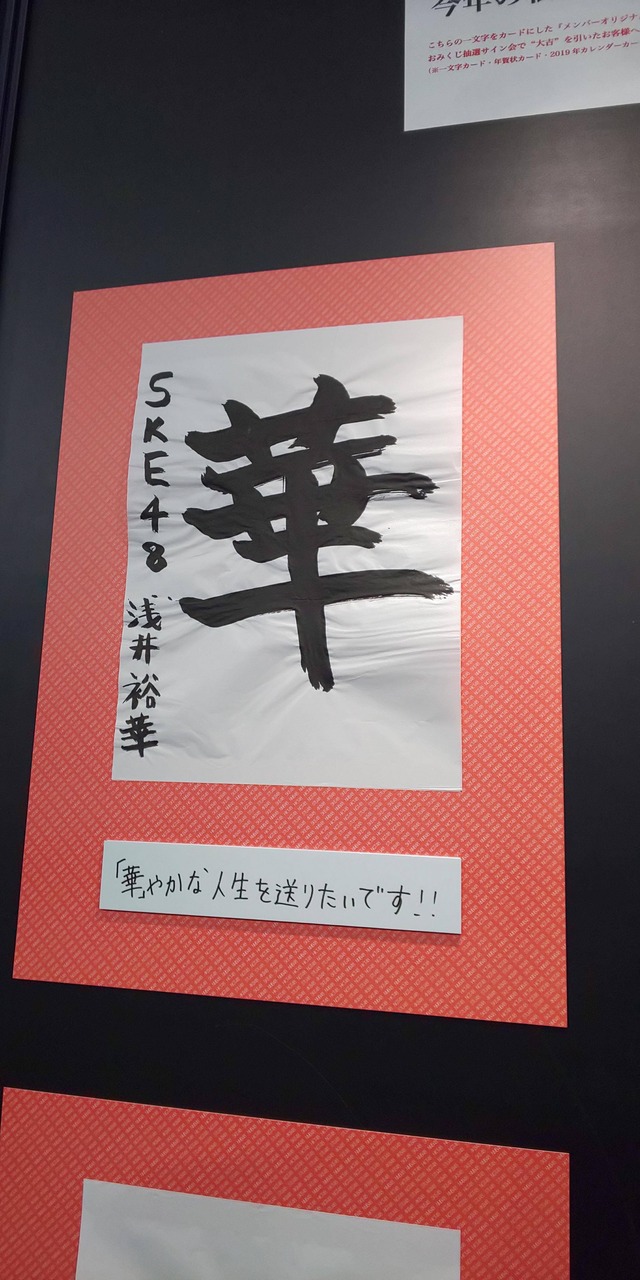 今年の
こちらの一文字をカードにした『メンバーオリジナ
おみくじ抽選サイン会で“大吉”を引いたお客様へ
(※一文字カード・年賀状カード・2019年カレンダーカー
華
SKE48 浅井裕華
「華」やかな人生を送りたいです!!